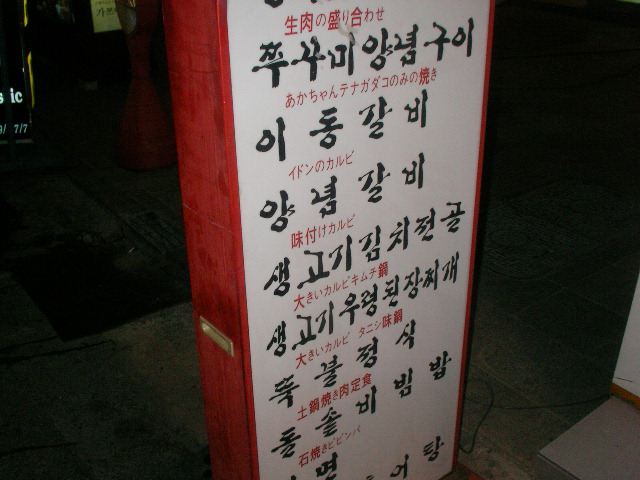 生肉の盛り合わせ
쭈꾸미양념구이
あかちゃんテナガダコのみの焼き
이동갈비
イドンのカルビ
양념갈비
味付けカルビ
생고기김치전골
大きいカルビキムチ鍋
생고기우렁된장찌개
大きいカルビ タニシ味鍋
뚝불정식
土鍋焼き肉定食
돌솥비빔밥
石焼きビビンバ
어탕